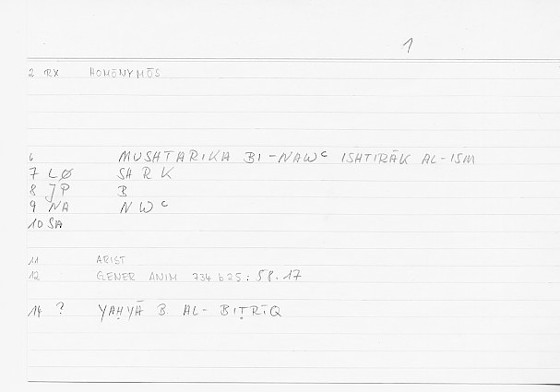 1
2 RX HOMŌNYMŌS
6 MUSHTARIKA BI-NAWʿ ISHTIRĀK AL-ISM
7 LØ SH R K
8 JP B
9 NA N W ʿ
10 SA
11 ARIST
12 GENER ANIM 734 b 25 : 58.17
14 ? YAḤYĀ B. AL-BIṬRĪQ